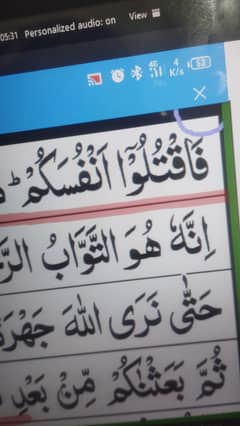 05:31 Personalized audio: on View
4G 4 K/s 53
فَاقْتُلُوْٓا اَنْفُسَكُمْ ؕ
اِنَّهٗ هُوَ التَّوَّابُ
حَتّٰى نَرَى اللّٰهَ جَهْرَةً
ثُمَّ بَعَثْنٰكُمْ مِّنْۢ بَعْدِ